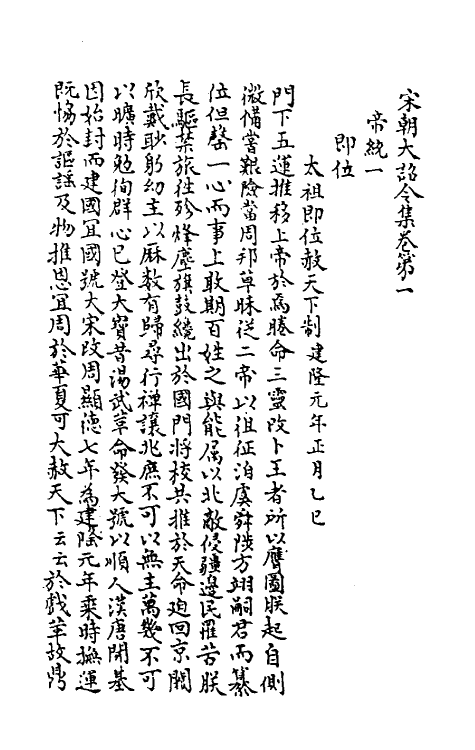 宋朝大詔令集卷第一
帝統一
即位
太祖即位赦天下制建隆元年正月乙巳
門下五運推移上帝於焉睠命三靈改卜王者所以膺圖朕起自側
微備嘗艱險當周邦草昧從二帝以徂征洎虞舜陟方翊嗣君而纂
位但罄一心而事上敢期百姓之與能属以北敵侵疆邊民罹苦朕
長驅禁旅往殄烽塵旗鼓纔出於國門將校共推於天命迫回京闕
欣戴眇躬幼主以厤数有歸尋行禅讓兆庶不可以無主萬幾不可
以曠時勉徇群心已登大寶昔湯武革命發大號以順人漢唐開基
因始封而建國冝國號大宋改周顯德七年為建隆元年乗時撫運
既恊於謳謡及物推恩冝周於華夏可大赦天下云云於戲革故鼎